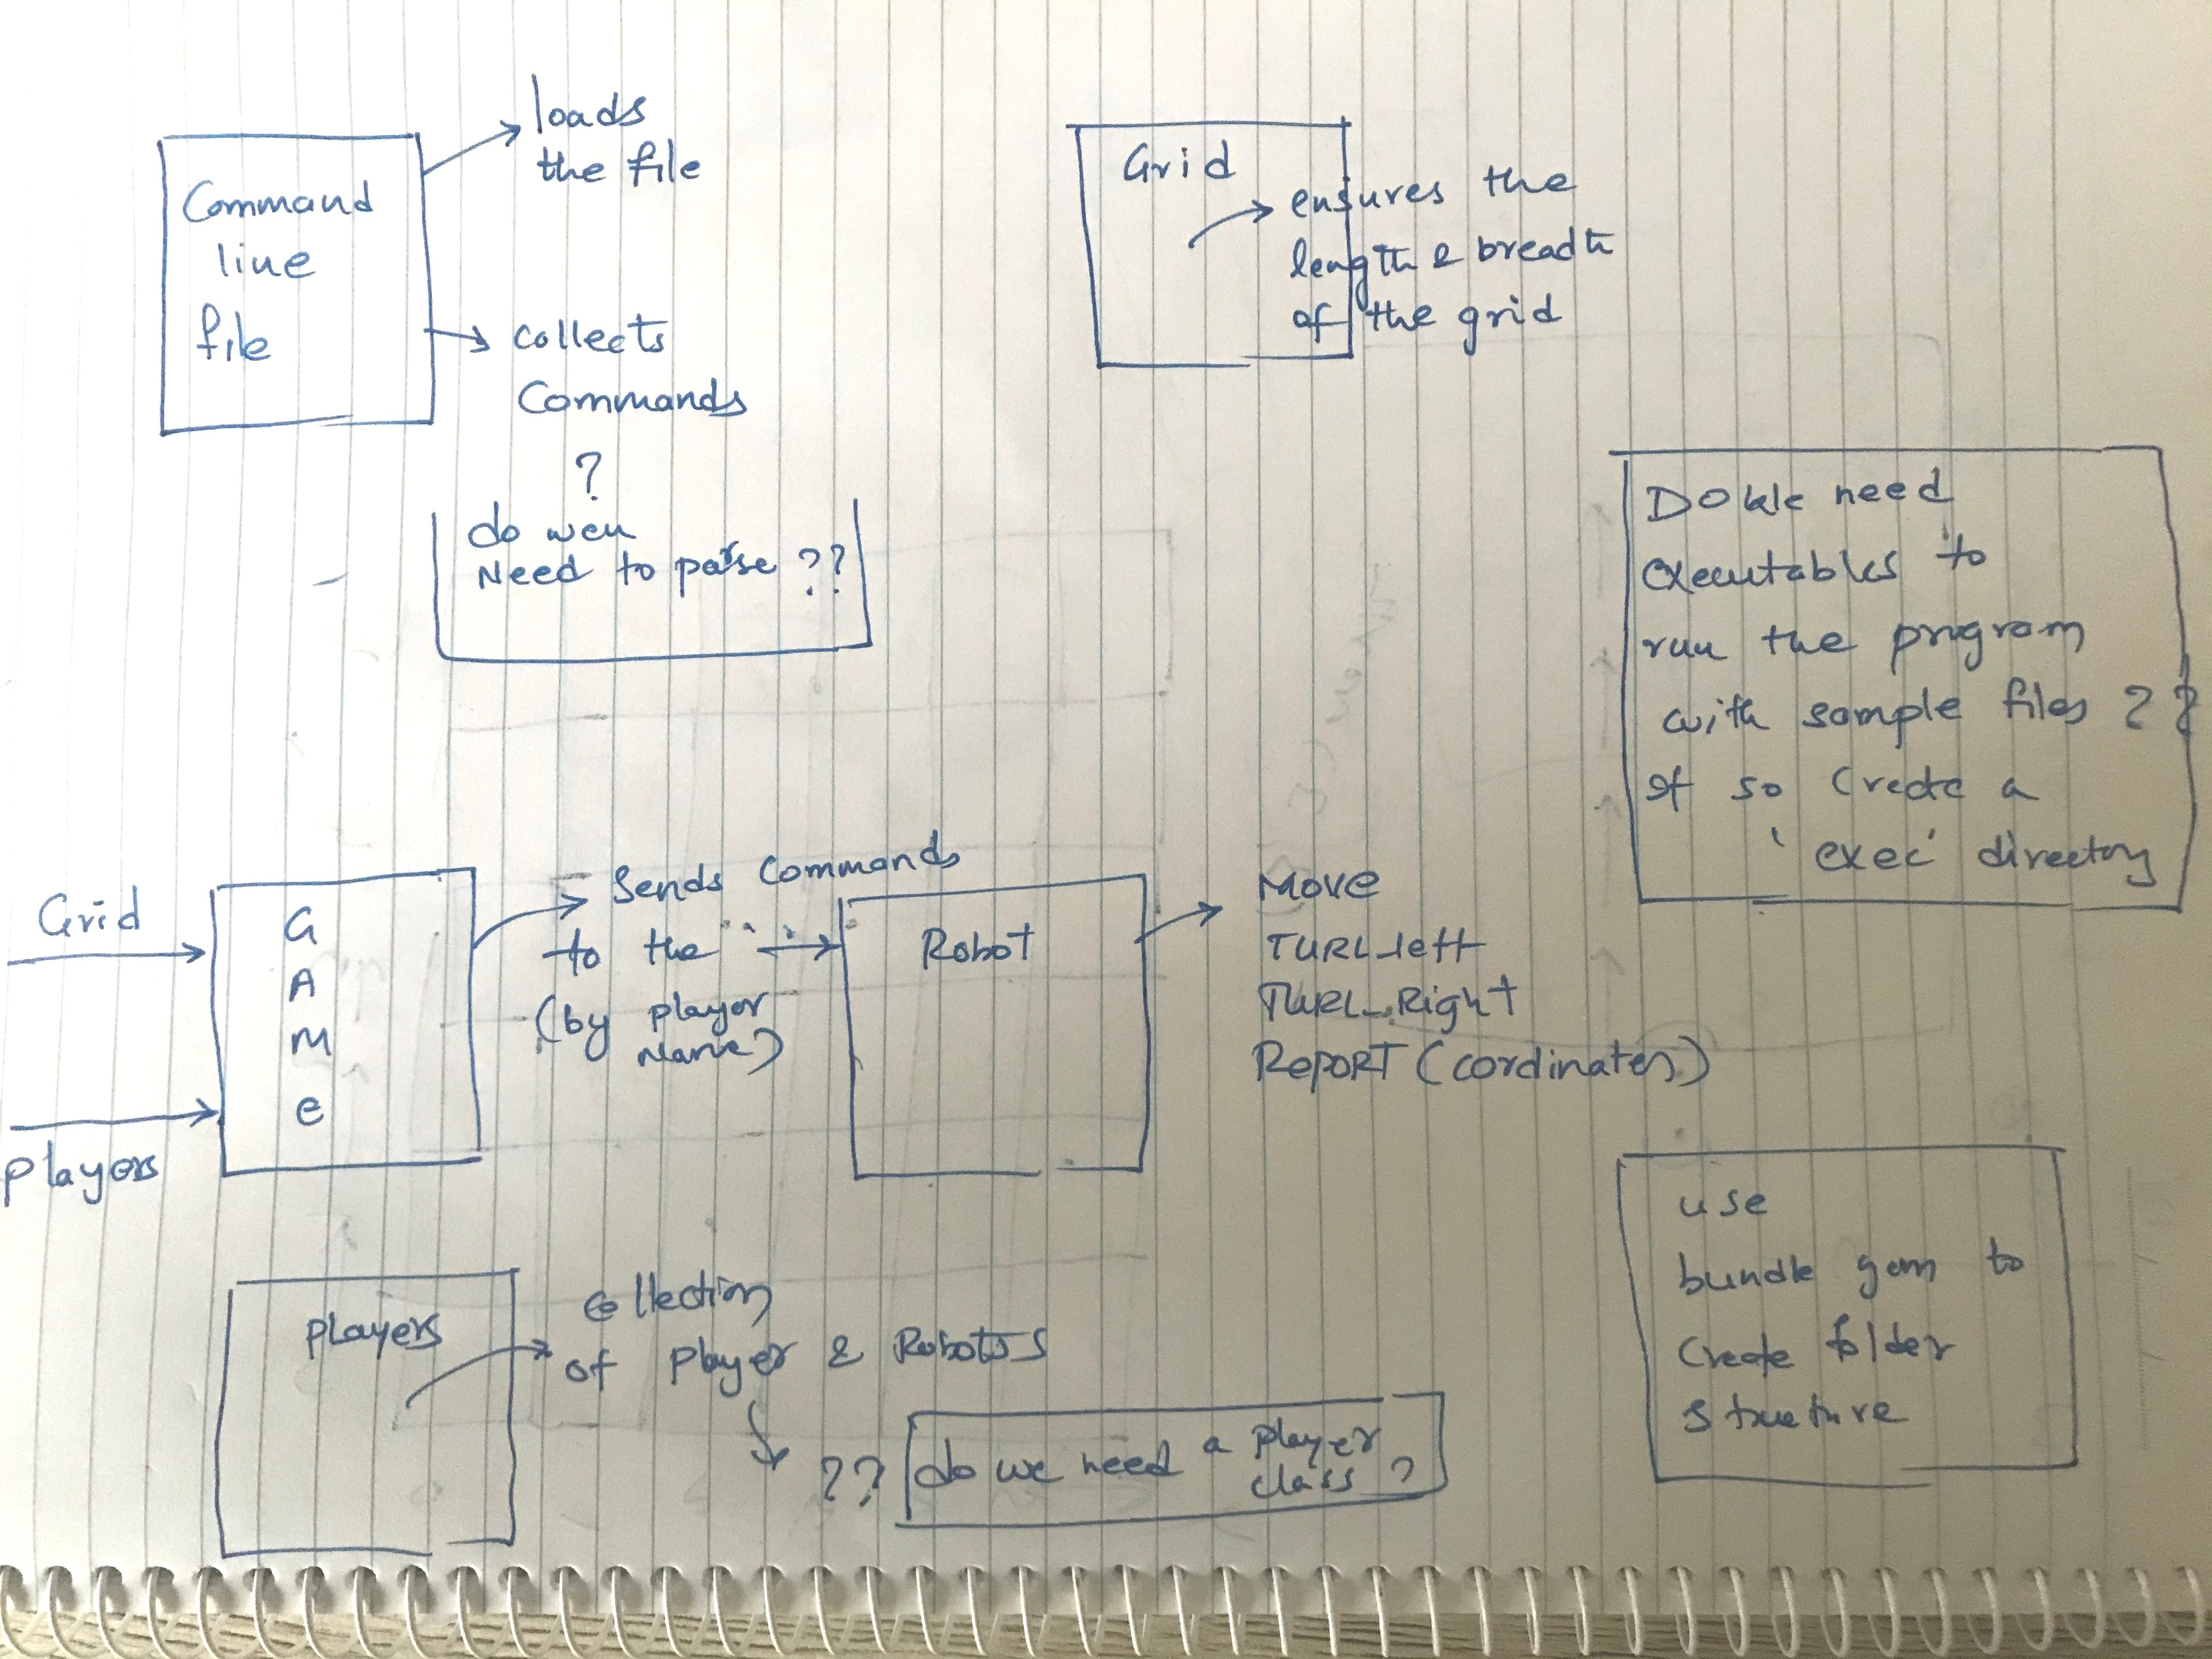 loads
the file
Command
line
file
collects
Commands
?
do weu
Need to parse ??
Grid
ensures the
length & breadth
of the grid
Do we need
executables to
run the program
with sample files ??
If so Create a
'exec' directory
Grid
players
G
A
M
e
Sends Commands
to the
(by player
Name)
Robot
Move
TURL_left
TURL_Right
RepoRT (cordinates)
players
Collection
of player & Robots
?? do we need a player
class ?
use
bundle gem to
Create folder
structure